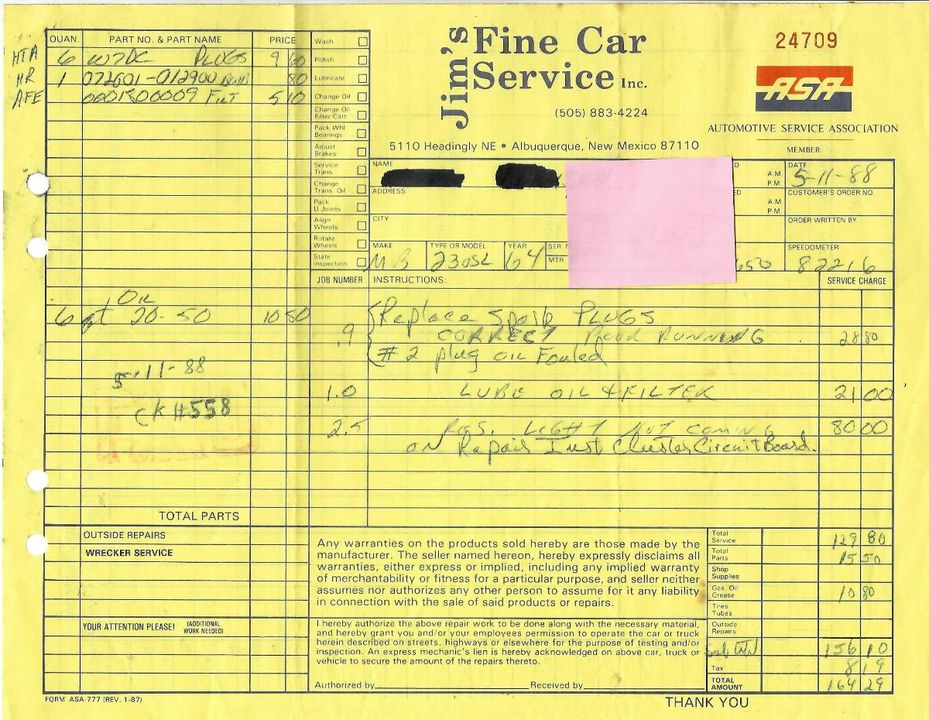 Jim's Fine Car Service Inc.
(505) 883-4224
5110 Headingly NE • Albuquerque, New Mexico 87110
24709
ASA
AUTOMOTIVE SERVICE ASSOCIATION
MEMBER
QUAN. PART NO. & PART NAME PRICE
HTA 6 W7DC PLUGS 9 60
HR 1 072601-012900 Bulb 80
AFE 0001800009 FILT 5 10
Wash
Polish
Lubricate
Change Oil
Change Oil Filter Cart
Pack Whl Bearings
Adjust Brakes
Service Trans
Change Trans. Oil
Pack U Joints
Align Wheels
Rotate Wheels
State Inspection
NAME
ADDRESS
CITY
A.M.
P.M.
A.M.
P.M.
DATE 5-11-88
CUSTOMER'S ORDER NO.
ORDER WRITTEN BY
MAKE MB
TYPE OR MODEL 230SL
YEAR 64
SER
MTR
650
SPEEDOMETER 82216
JOB NUMBER INSTRUCTIONS: SERVICE CHARGE
OIL
6 qt 20-50 10 80
5-11-88
CK#558
Replace Spark PLUGS
.9 CORRECT POOR RUNNING 28 80
#2 plug oil Fouled
1.0 LUBE OIL & FILTER 21 00
2.5 RES. LIGHT NOT COMING 80 00
ON Repair Inst Cluster Circuit Board.
TOTAL PARTS
OUTSIDE REPAIRS
WRECKER SERVICE
YOUR ATTENTION PLEASE! (ADDITIONAL WORK NEEDED)
Any warranties on the products sold hereby are those made by the
manufacturer. The seller named hereon, hereby expressly disclaims all
warranties, either express or implied, including any implied warranty
of merchantability or fitness for a particular purpose, and seller neither
assumes nor authorizes any other person to assume for it any liability
in connection with the sale of said products or repairs.
I hereby authorize the above repair work to be done along with the necessary material,
and hereby grant you and/or your employees permission to operate the car or truck
herein described on streets, highways or elsewhere for the purpose of testing and/or
inspection. An express mechanic's lien is hereby acknowledged on above car, truck or
vehicle to secure the amount of the repairs thereto.
Authorized by Received by
Total Service 129 80
Total Parts 15 50
Shop Supplies
Gas, Oil Grease 10 80
Tires Tubes
Outside Repairs
sub total 156 10
Tax 8 19
TOTAL AMOUNT 164 29
FORM ASA-777 (REV. 1-87)
THANK YOU